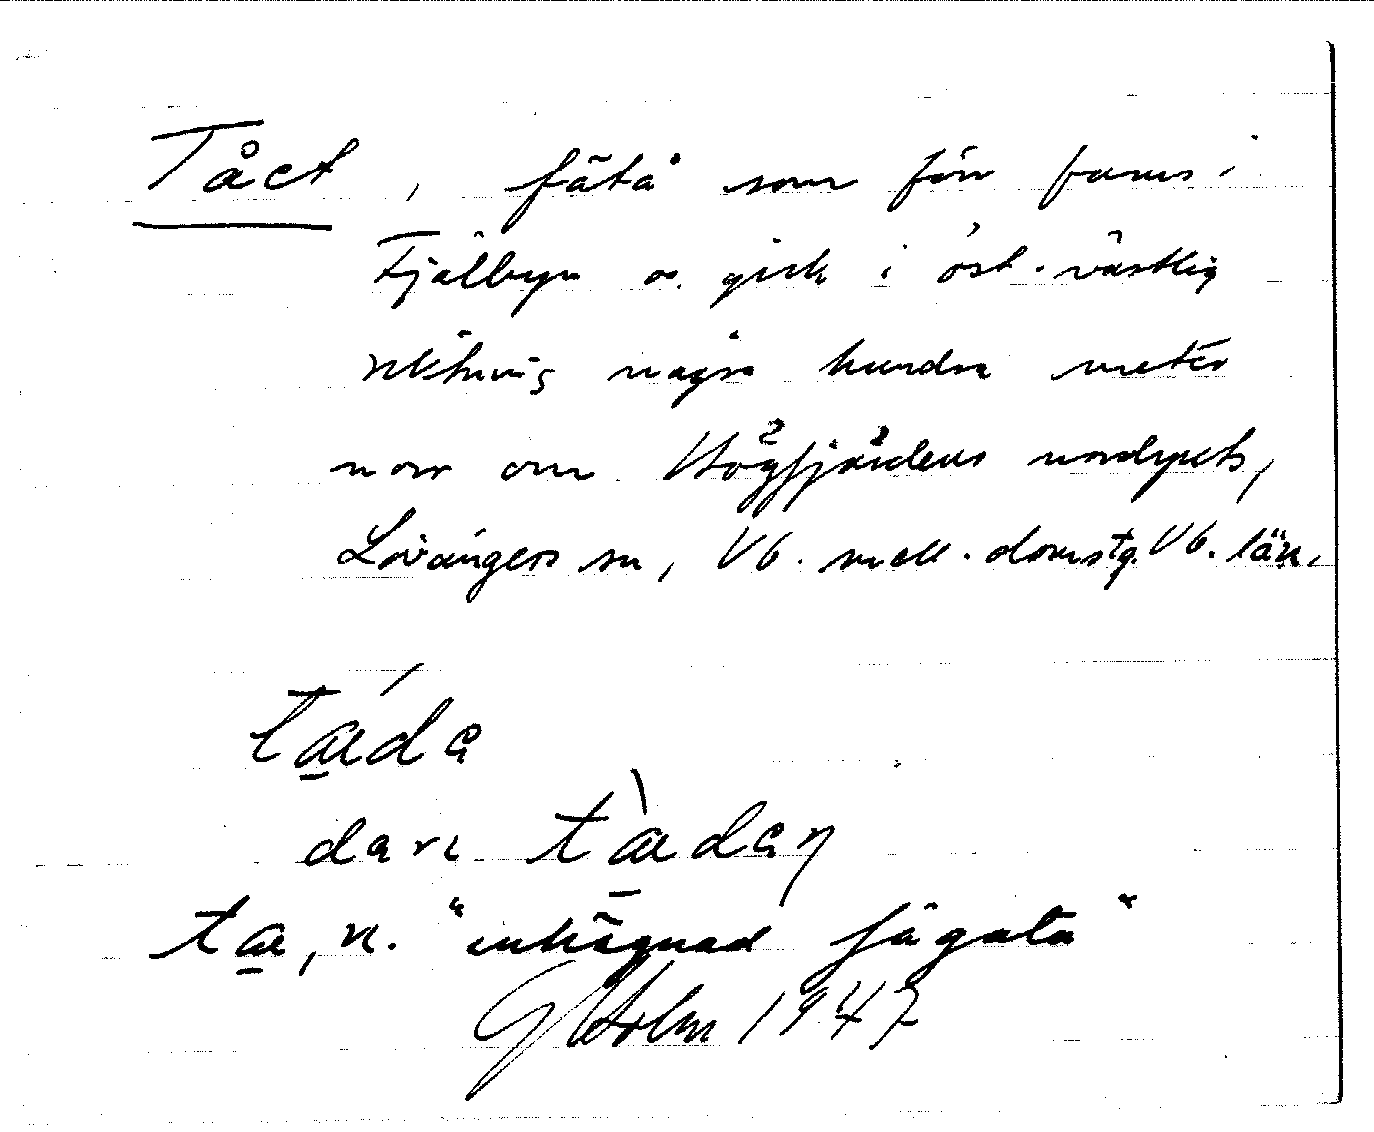 Tået, fätå som förr fanns i
Fjälbyn o. gick i öst-västlig
riktning några hundra meter
norr om Högfjärdens nordspets,
Lövångers sn, Vb. mell. domstg. Vb. län.
tǽ̱da
dat. tæ̱̀dan
tæ̱, n. "inhägnad fägata"
G Holm 1947